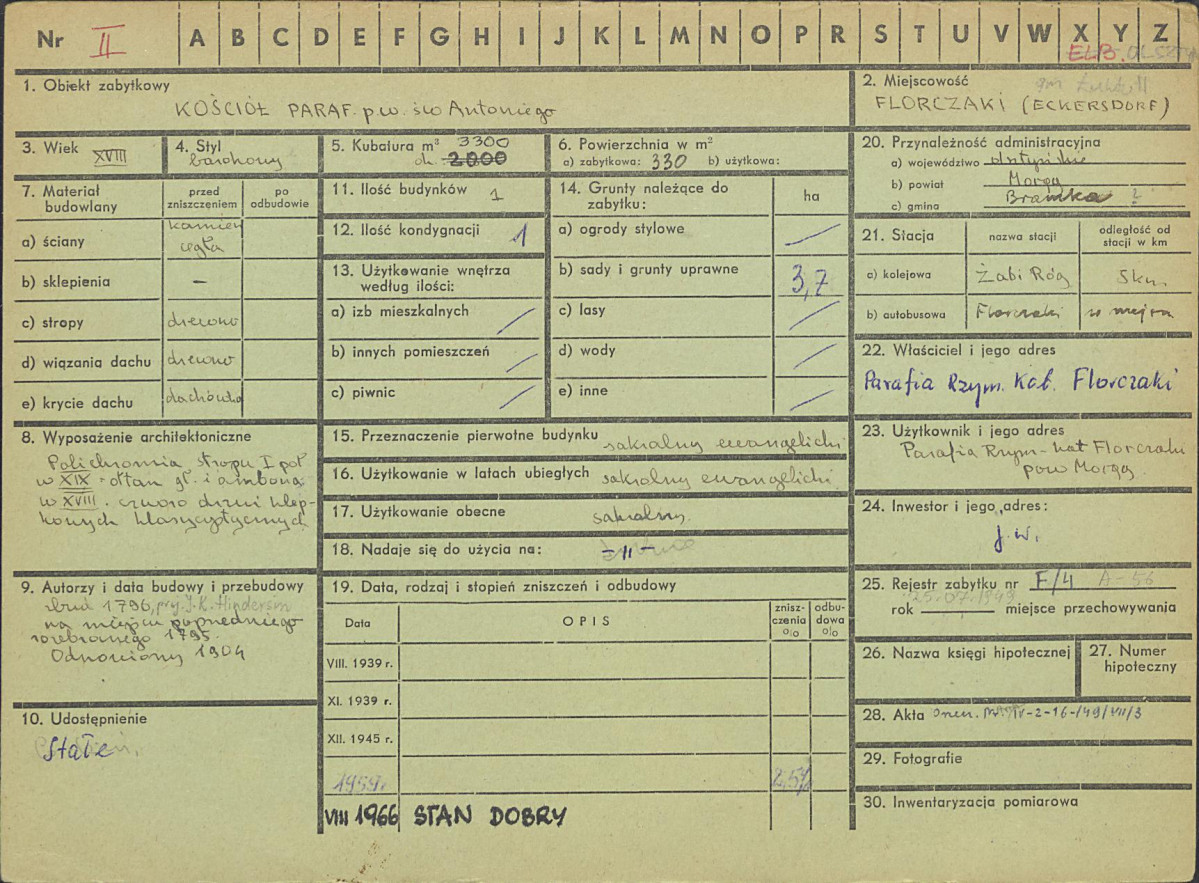 Nr II A B C D E F G H I J K L M N O P R S T U V W X Y Z
ELB. OLSZTYN
1. Obiekt zabytkowy
KOŚCIÓŁ PARAF. p.w. św Antoniego
2. Miejscowość
gm
FLORCZAKI (ECKERSDORF)
3. Wiek XVIII
4. Styl
barokowy
5. Kubatura m³ 3300
ok. 2000
6. Powierzchnia w m²
a) zabytkowa: 330 b) użytkowa:
7. Materiał budowlany
przed zniszczeniem
po odbudowie
a) ściany kamień
cegła
b) sklepienia –
c) stropy drewno
d) wiązania dachu drewno
e) krycie dachu dachówka
8. Wyposażenie architektoniczne
Polichromia stropu I poł
w XIX - ołtarz gł. i ambona
w XVIII. czworo drzwi klep-
kowych klasycystycznych
9. Autorzy i data budowy i przebudowy
zbud 1796, prz. J.K. Hindersin
na miejscu poprzedniego
rozebranego 1795.
Odnowiony 1904
10. Udostępnienie
Stałe
11. Ilość budynków 1
12. Ilość kondygnacji 1
13. Użytkowanie wnętrza
według ilości:
a) izb mieszkalnych
b) innych pomieszczeń
c) piwnic
14. Grunty należące do
zabytku: ha
a) ogrody stylowe
b) sady i grunty uprawne 3,7
c) lasy
d) wody
e) inne
15. Przeznaczenie pierwotne budynku sakralny ewangelicki
16. Użytkowanie w latach ubiegłych sakralny ewangelicki
17. Użytkowanie obecne sakralny
18. Nadaje się do użycia na: -"-
19. Data, rodzaj i stopień zniszczeń i odbudowy
Data OPIS znisz-
czenia
o/o odbu-
dowa
o/o
VIII. 1939 r.
XI. 1939 r.
XII. 1945 r.
1959r. 25%
VIII 1966 STAN DOBRY
20. Przynależność administracyjna
a) województwo olsztyńskie
b) powiat Morąg
c) gmina Bramka ?
21. Stacja
nazwa stacji
odległość od
stacji w km
a) kolejowa Żabi Róg 5km
b) autobusowa Florczaki w miejscu
22. Właściciel i jego adres
Parafia Rzym. Kat. Florczaki
23. Użytkownik i jego adres
Parafia Rzym-kat Florczaki
pow Morąg
24. Inwestor i jego adres:
j.w.
25. Rejestr zabytku nr F/4 A-56
25.07.1949
rok miejsce przechowywania
26. Nazwa księgi hipotecznej
27. Numer
hipoteczny
28. Akta IV-2-16-/49/VII/3
29. Fotografie
30. Inwentaryzacja pomiarowa